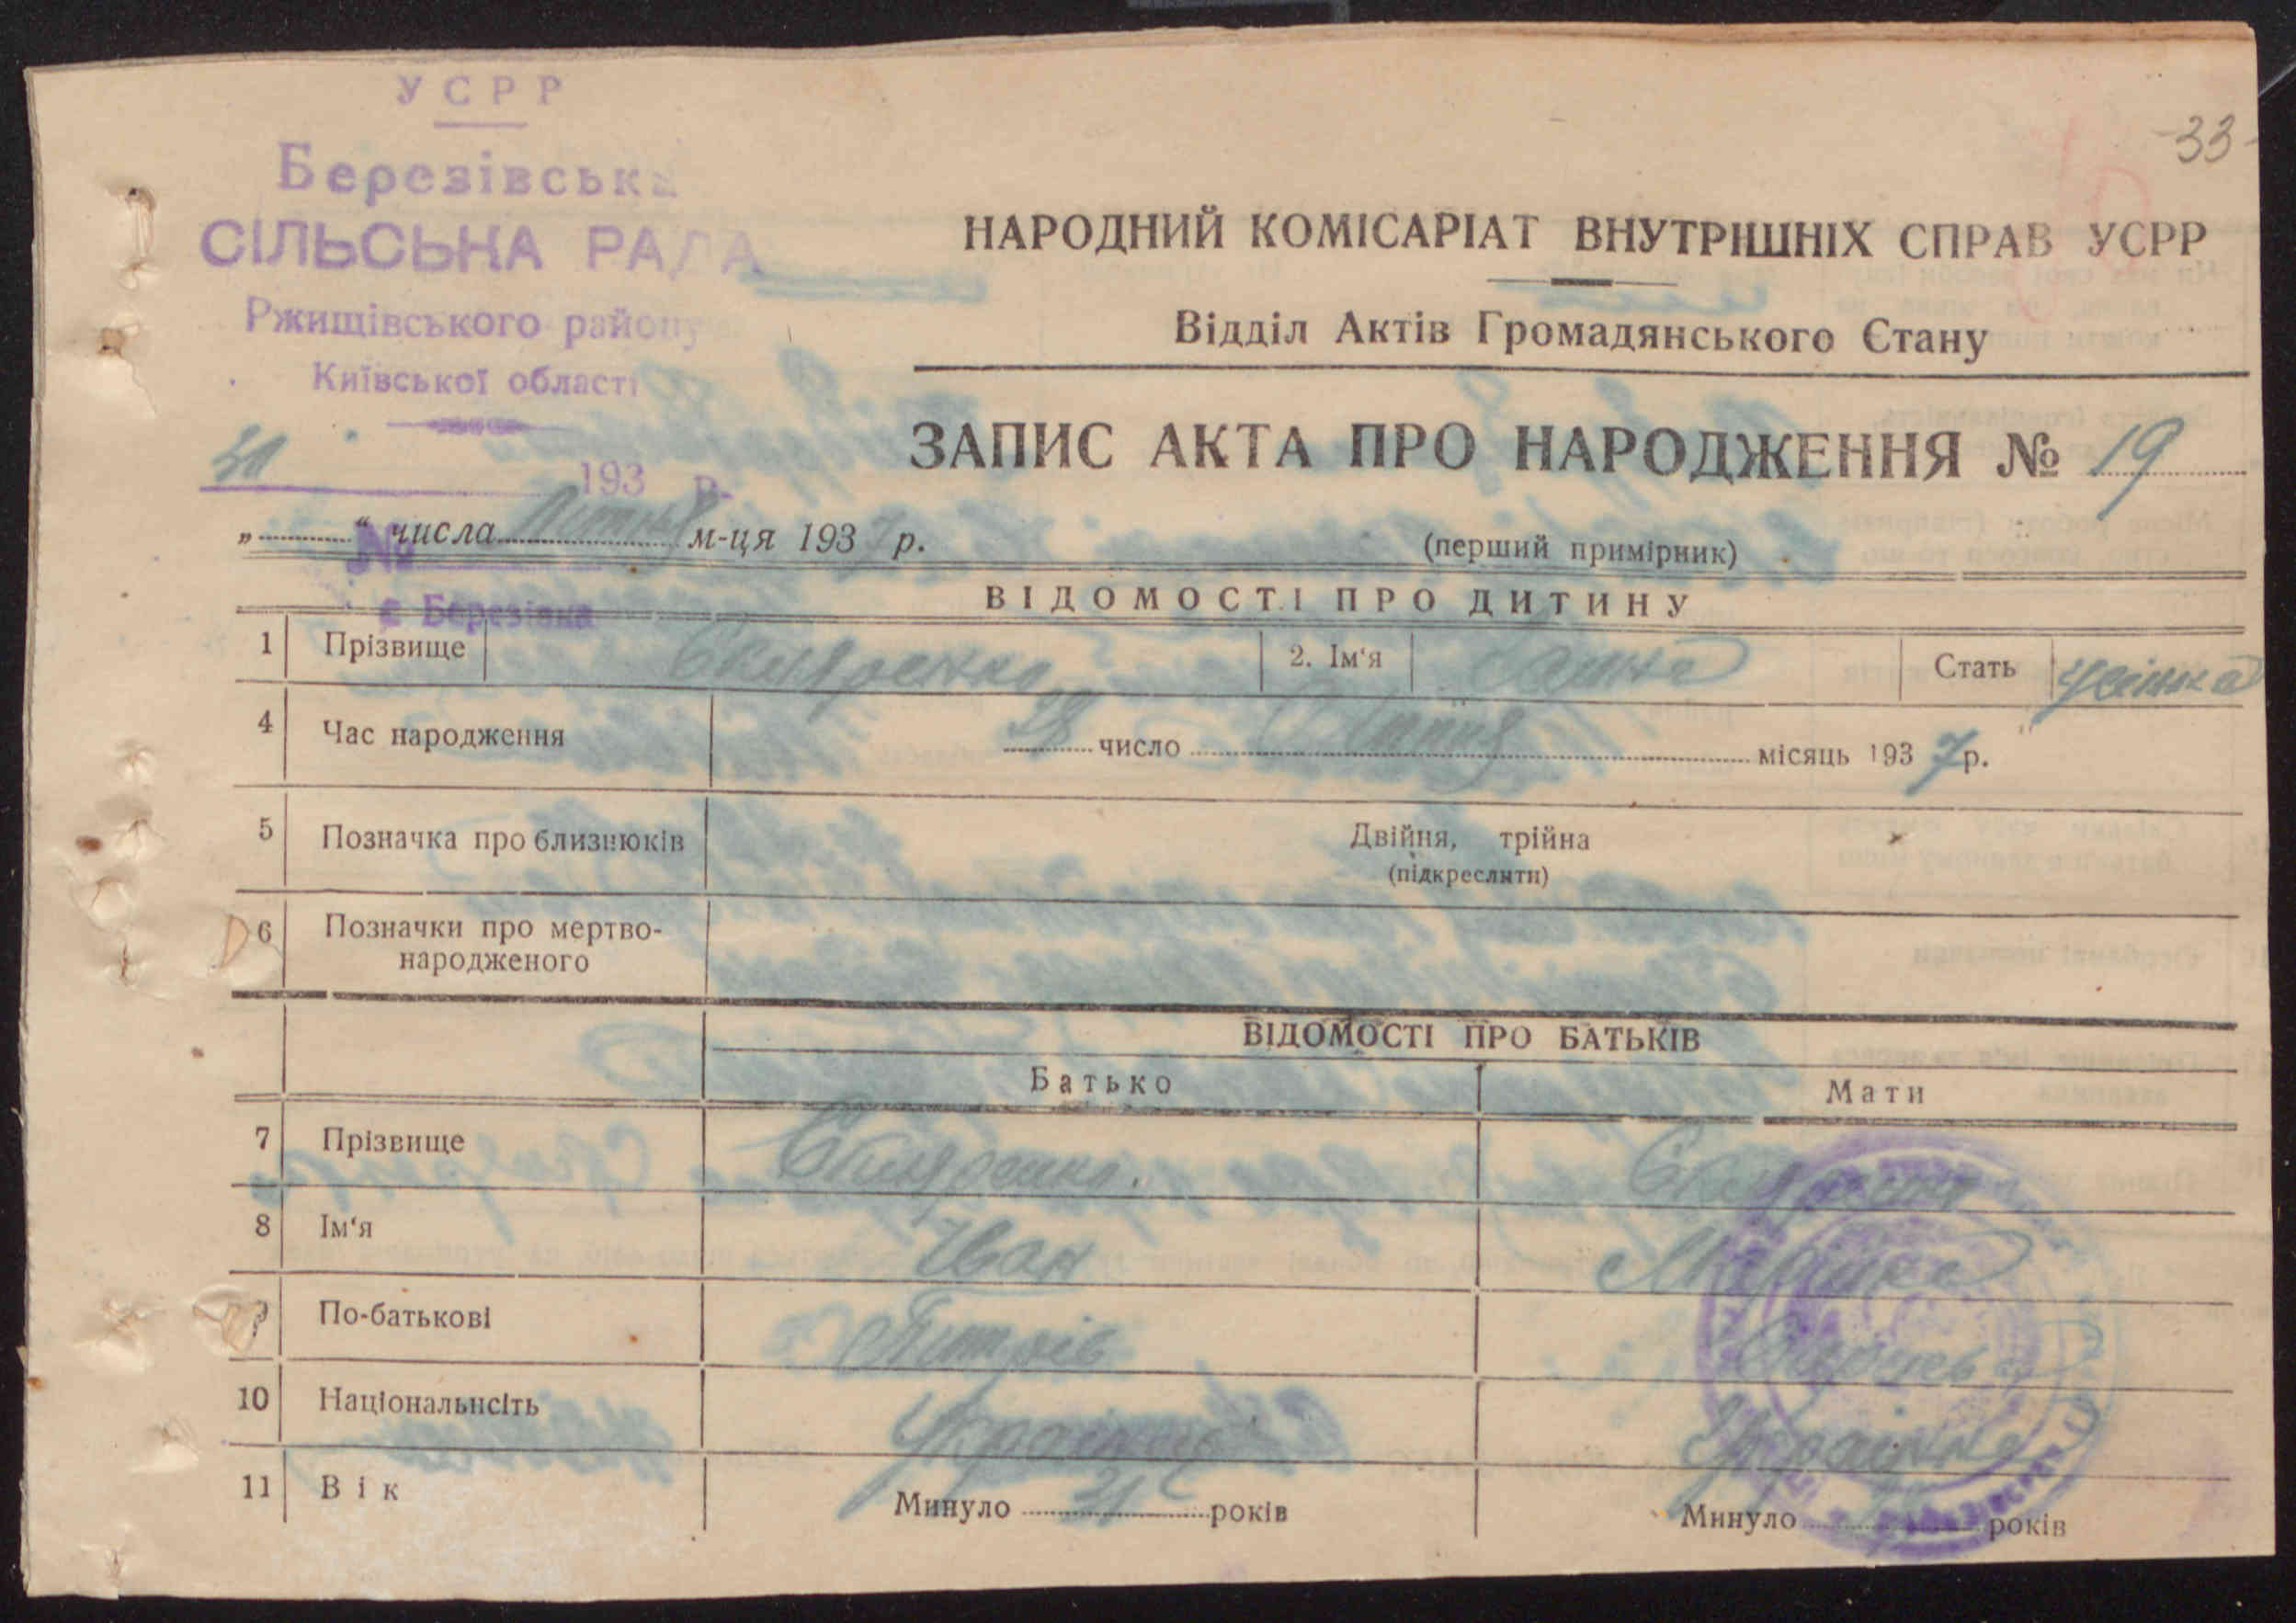 УСРР
Березівська
СІЛЬСЬКА РАДА
Ржищівського району
Київської області
193 р.
№
с Березівка
33
НАРОДНИЙ КОМІСАРІАТ ВНУТРІШНІХ СПРАВ УСРР
Відділ Актів Громадянського Стану
ЗАПИС АКТА ПРО НАРОДЖЕННЯ № 19
„ “ числа м-ця 1937 р.
(перший примірник)
ВІДОМОСТІ ПРО ДИТИНУ
1 Прізвище Скляренко 2. Ім‘я Ганна Стать жіноча
4 Час народження 28 число місяць 1937 р.
5 Позначка про близнюків Двійня, трійна
(підкреслити)
6 Позначки про мертво-
народженого
ВІДОМОСТІ ПРО БАТЬКІВ
Батько Мати
7 Прізвище Скляренко. Скляренко
8 Ім‘я Іван
9 По-батькові
10 Національнсіть Українець Українка
11 Вік Минуло 21 років Минуло років